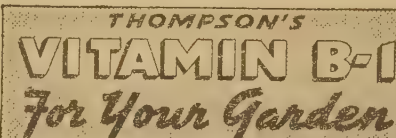 THOMPSON'S
VITAMIN B-1
For Your Garden